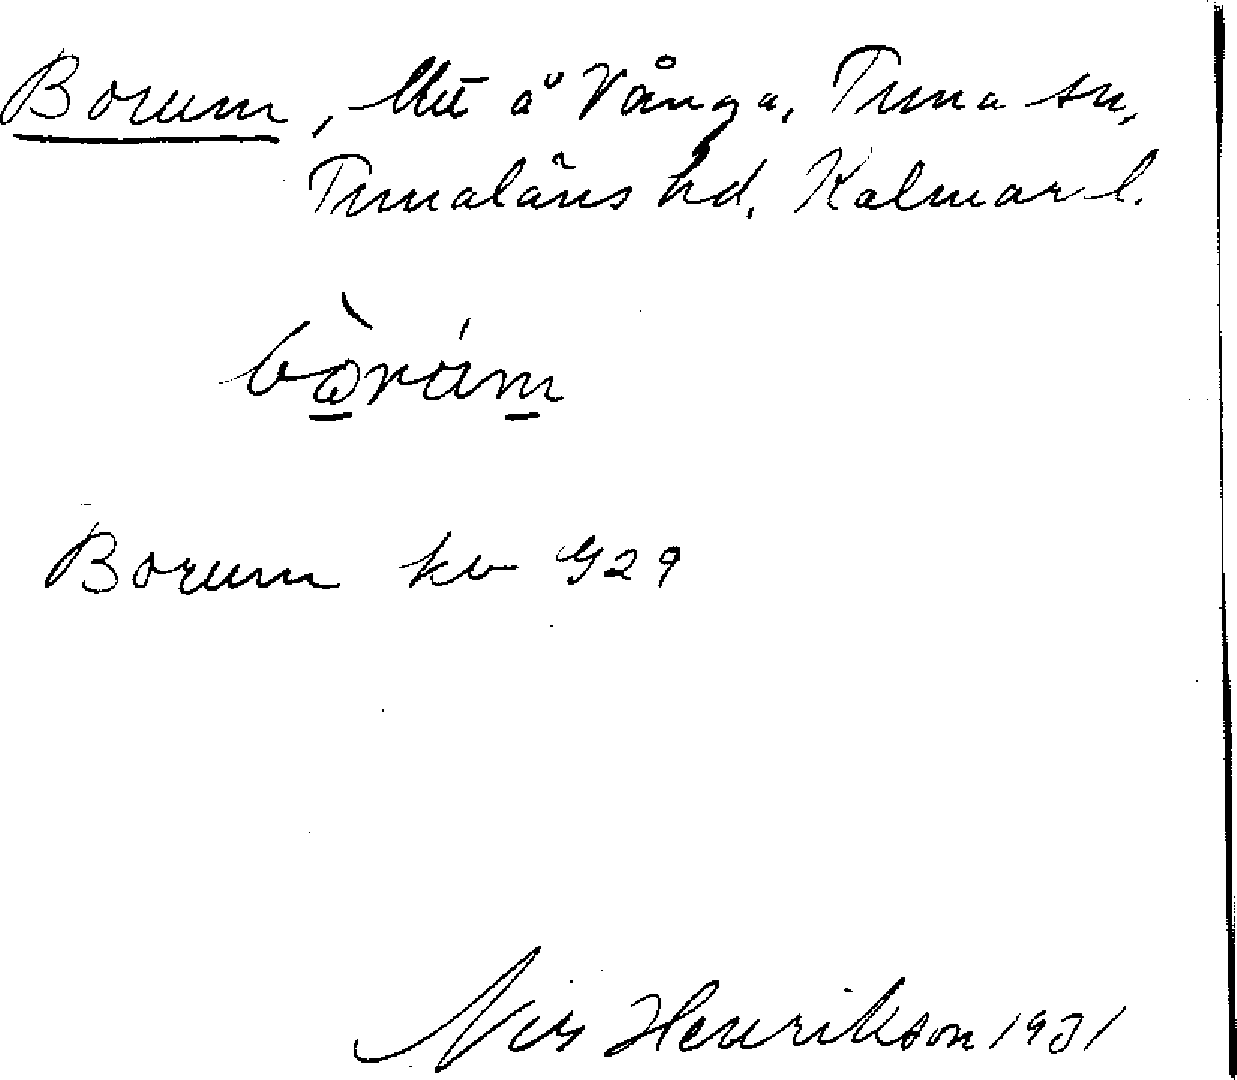 Borum, lht å Vånga, Tuna sn,
Tunaläns hd, Kalmar l.
bòrúm
Borum kv G29
Nils Henrikson 1931